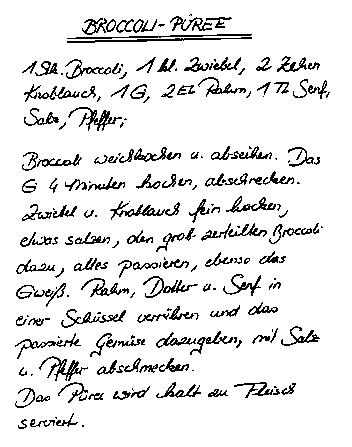 BROCCOLI-PÜREE
1 Stk. Broccoli, 1 kl. Zwiebel, 2 Zehen
Knoblauch, 1 G, 2 EL Rahm, 1 TL Senf,
Salz, Pfeffer;
Broccoli weichkochen u. abseihen. Das
G 4 Minuten kochen, abschrecken.
Zwiebel u. Knoblauch fein hacken,
etwas salzen, den grob zerteilten Broccoli
dazu, alles passieren, ebenso das
Eiweiß. Rahm, Dotter u. Senf in
einer Schüssel verrühren und das
passierte Gemüse dazugeben, mit Salz
u. Pfeffer abschmecken.
Das Püree wird kalt zu Fleisch
serviert.